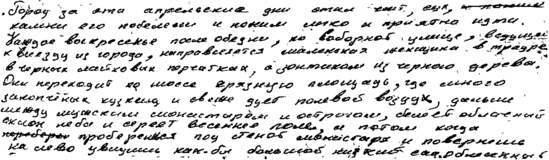 .Город за эти апрельские дни стал чист, сух,
камни его побелели и по ним легко и приятно идти.
Каждое воскресенье после обедни, по Соборной улице, ведущей
к выезду из города, направляется маленькая женщина в трауре,
в черных лайковых перчатках, с зонтиком из черного дерева.
Она переходит по шоссе грязную площадь, где много
закопчёных кузниц и свежо дует полевой воздух, дальше
между мужским монастырём и острогом, белеет облачный
склон неба и сереет весеннее поле, а потом когда
проберешься под стеной монастыря и повернешь
на лево увидишь как-бы большой низкий сад, обнесенный